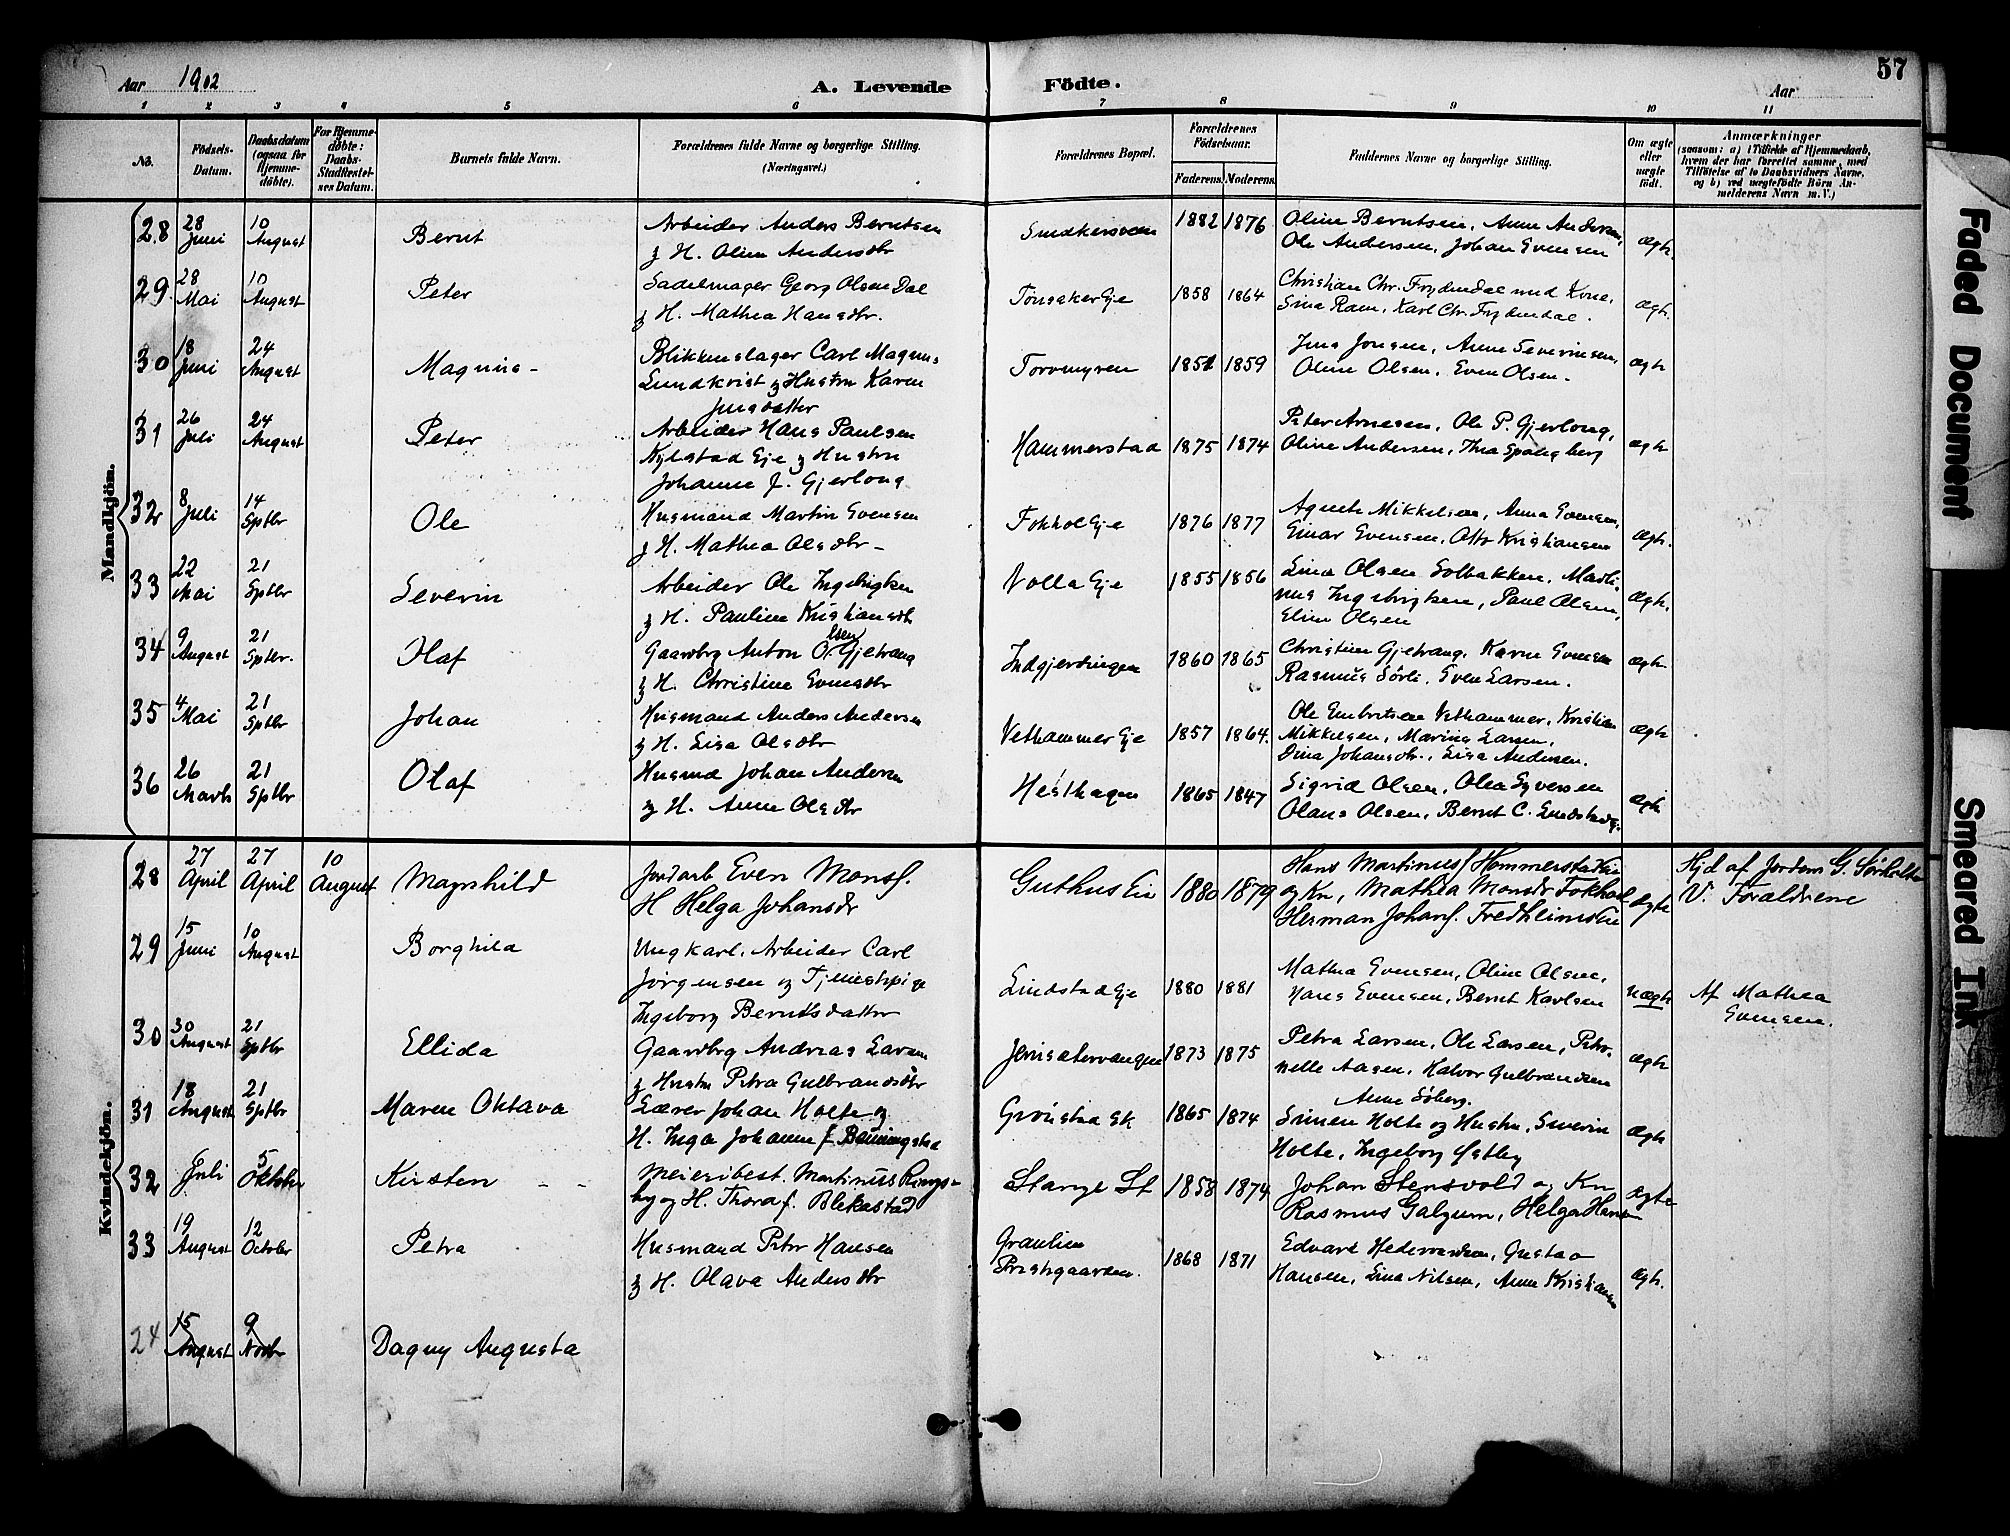 Aar 1902
A. Levende Födte.
57
Aar
1 2 3 4 5 6 7 8 9 10 11
No.
Födsels-Datum.
Daabsdatum (ogsaa for Hjemme-döbte).
For Hjemme-döbte: Daabs-Stadfæstel-ses Datum.
Barnets fulde Navn.
Forældrenes fulde Navne og borgerlige Stilling. (Næringsvei.)
Forældrenes Bopæl.
Forældrenes Födselsaar.
Faderens Moderens
Faddernes Navne og borgerlige Stilling.
Om ægte eller uægte födt.
Anmærkninger
(saasom: a) i Tilfælde af Hjemmedaab, hvem der har forrettet samme, med Tilföielse af to Daabsvidners Navne, og b) ved uægtefödte Börn An-melderens Navn m. V.)
Mandkjön.
28 28 Juni 10 August Bernt Arbeider Anders Berntsen
& H. Oline Andersdtr 1882 1876 Oline Berntsen, Anne Andersen,
Ole Andersen, Johan Evensen ægte.
29 28 Mai 10 August Peter Sadelmager Georg Olsen Dal
& H. Mathea Hansdtr. Tönsaker Eje 1858 1864 Christian Chr. Frydendal med Kone,
Sina Raen, Karl Chr. Frydendal. ægte.
30 18 Juni 24 August Magnus - Blikkenslager Carl Magnus
Lundkvist & Hustru Karen
Jensdatter Torvmyren 1851 1859 Jens Jensen, Anne Severinsen,
Oline Olsen, Even Olsen. ægte
31 26 Juli 24 August Peter Arbeider Hans Paulsen
Nylstad Eje & Hustru
Johanne f. Gjerlong Hammerstad 1875 1874 Peter Arnesen, Ole P. Gjerlong,
Oline Andersen, Thea Spangberg ægte
32 8 Juli 14 Sptbr Ole Husmand Martin Evensen
& H. Mathea Olsdtr - Fokhol Eje 1876 1877 Agnete Mikkelsen, Anna Evensen,
Einar Evensen, Otto Kristiansen ægte.
33 22 Mai 21 Sptbr Severin Arbeider Ole Ingebrigtsen
& H. Pauline Kristiansdtr Volla Eje 1855 1856 Lina Olsen Solbakken, Marti-
nus Ingebrigtsen, Paul Olsen,
Eline Olsen ægte.
34 9 August 21 Sptbr. Olaf Gaardbrg Anton O. Gjetvang
& H. Christine Evensdtr Indgjerdingen 1860 1865 Christine Gjetvang, Karen Evensen
Rasmus Sörli, Even Larsen. ægte
35 4 Mai 21 Sptbr Johan Husmand Anders Andersen
& H. Lisa Olsdtr Vethammer Eje 1857 1864. Ole Embretsen Vethammer, Kristian
Mikkelsen, Marina Larsen,
Dina Johansdtr., Lisa Andersen. ægte
36 26 Marts 21 Sptbr Olaf Husmd Johan Andersen
& H. Anne Olsdtr Hesthagen 1865 1847 Sigrid Olsen, Olea Syversen
Olaus Olsen, Bernt C. Lindstadeje. ægte
Kvindekjön.
28 27 April 27 April 10 August Magnhild Jordarb Even Monsf.
H Helga Johansdr Guthus Eie 1880 1879 Hans Martinusf Hammerstadeie
og Kn, Mathea Monsdr Fokhol
Herman Johansf. Fredheimseie ægte Hjd af Jordem G. Sørholte
V. Forældrene
29 15 Juni 10 August Borghild Ungkarl. Arbeider Carl
Jörgensen og Tjenestepige
Ingeborg Berntsdatter Lindstad Eje 1880 1881 Mathea Evensen, Oline Olsen,
Hans Evensen, Bernt Karlsen uægte Af Mathea
Evensen.
30 30 August 21 Sptbr Ellida Gaardbrg Andreas Larsen
& Hustru Petra Gulbrandsdtr Jensætervangen 1873 1875 Petra Larsen, Ole Larsen, Petro-
nelle Aasen, Halvor Gulbrandsen
Anne Söberg. ægte
31 18 August 21 Sptbr Maren Oktava Lærer Johan Holte og
H. Inga Johanne f. Bauningstad Grönstad Sk 1865 1874 Simen Holte og Hustru, Severin
Holte, Ingeborg Østby ægte
32 Juli 5 Oktober Kirsten - - Meieribest. Martinus Rings-
by og H. Thora f. Blekastad Stange St 1858 1874 Johan Stensvold og Kn
Rasmus Galgum, Helga Hansen ægte
33 19 August 12 October Petra Husmand Peter Hansen
& H. Olava Andersdtr Graulien
Prestegaarden. 1868 1871 Edvard Hedevardsen, Gustav
Hansen, Lina Nilsen, Anne Kristiansen ægte.
24 15 August 9 Novbr Dagny Augusta
Faded Document
Smeared Ink